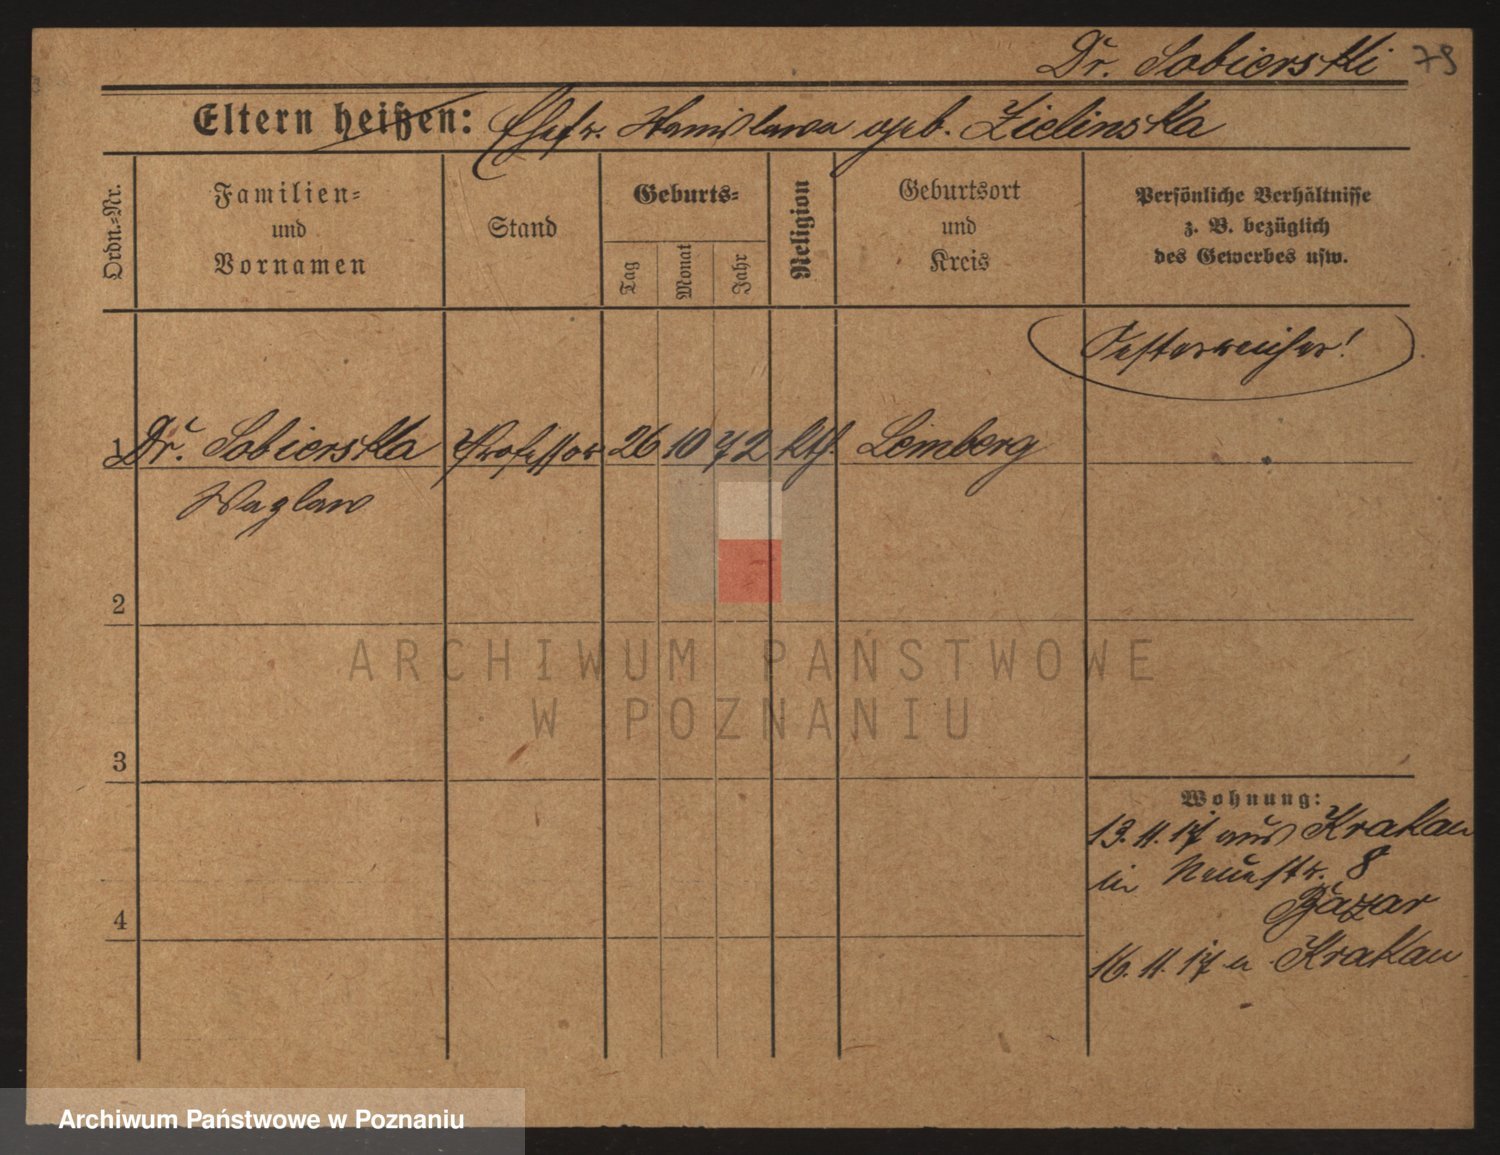 Dr. Sobierski 79
Eltern heißen: Ehefr. Stanislawa geb. Zielinska
Ordn.-Nr.
Familien-
und
Vornamen
Stand
Geburts-
Tag
Monat
Jahr
Religion
Geburtsort
und
Kreis
Persönliche Verhältnisse
z. B. bezüglich
des Gewerbes usw.
Oesterreicher!
1 Dr. Sobierska Professor 26 10 72 kth. Lemberg
Waglaw
2
ARCHIWUM PAŃSTWOWE
W POZNANIU
3
Wohnung:
13. 11. 17 aus Krakau
in Neuestr. 8
Bazar
4
16. 11. 17 n Krakau
Archiwum Państwowe w Poznaniu